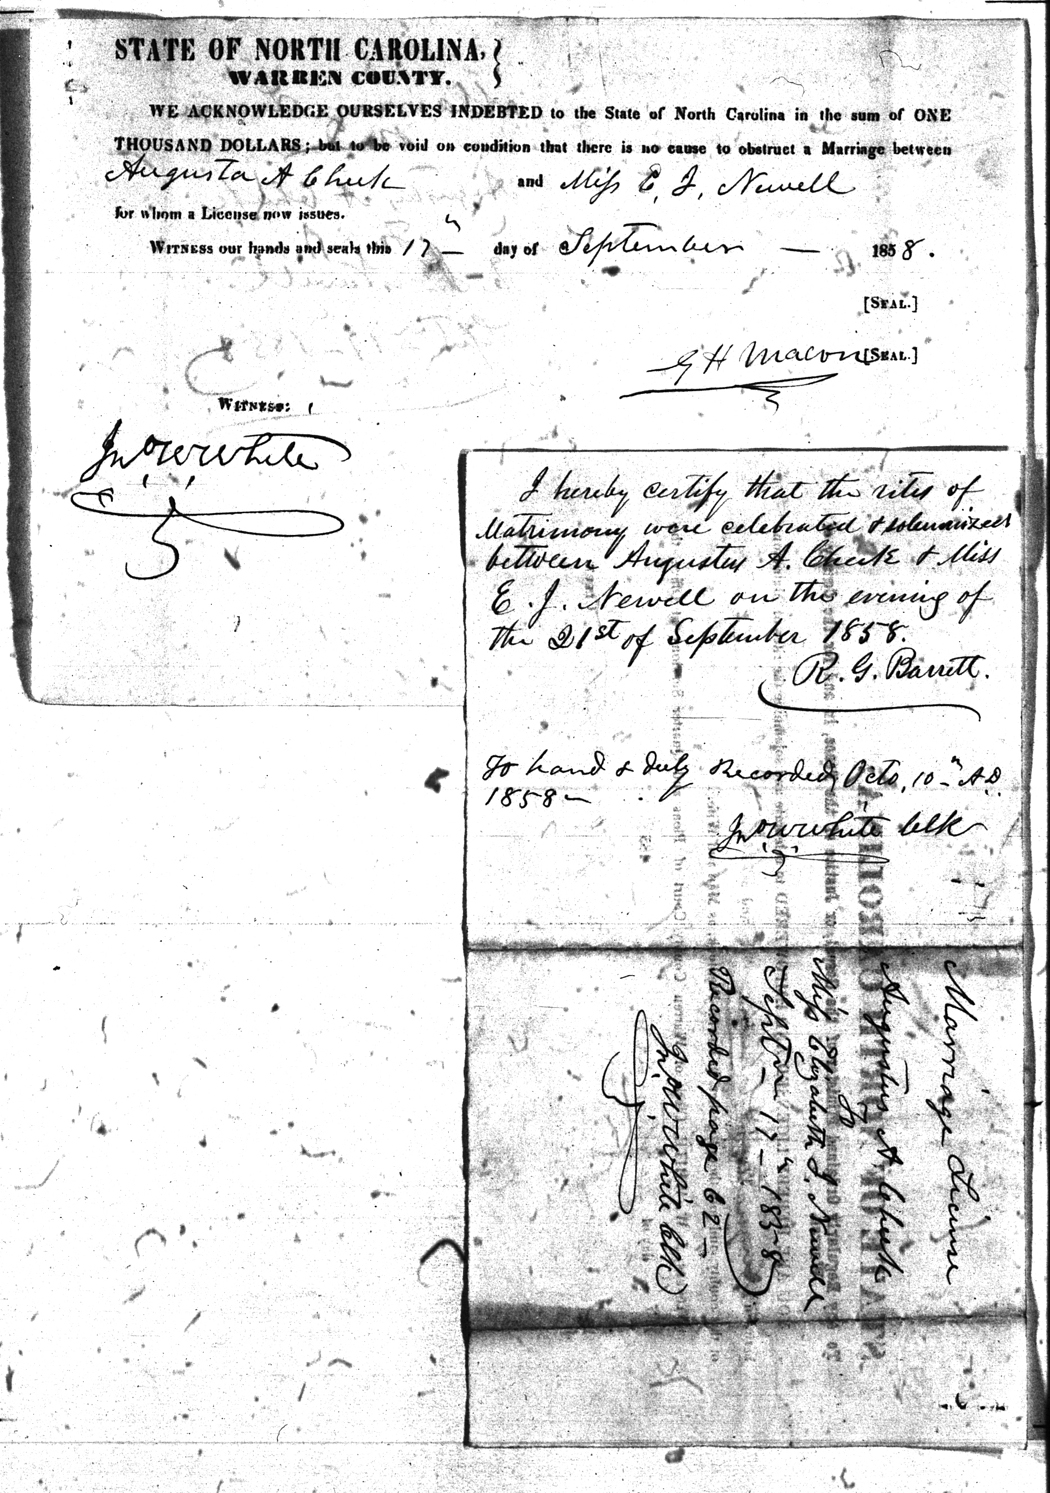 STATE OF NORTH CAROLINA,
WARREN COUNTY.
WE ACKNOWLEDGE OURSELVES INDEBTED to the State of North Carolina in the sum of ONE
THOUSAND DOLLARS; but to be void on condition that there is no cause to obstruct a Marriage between
Augusta A Cheek and Miss E, J, Newell
for whom a License now issues.
WITNESS our hands and seals this 17th day of September — 1858.
[SEAL.]
G H Macon [SEAL.]
WITNESS:
Jno W White
I hereby certify that the rites of
Matrimony were celebrated & solemnized
between Augustus A. Cheek & Miss
E. J. Newell on the evening of
the 21st of September 1858.
R. G. Barrett.
To hand & duly Recorded, Octo, 10th A.D.
1858—
Jno W White Clk
Marriage License
Augustus A. Cheek
To
Miss Elizabeth J. Newell
Septr 17th 1858
Recorded page 62—
Jno W White Clk